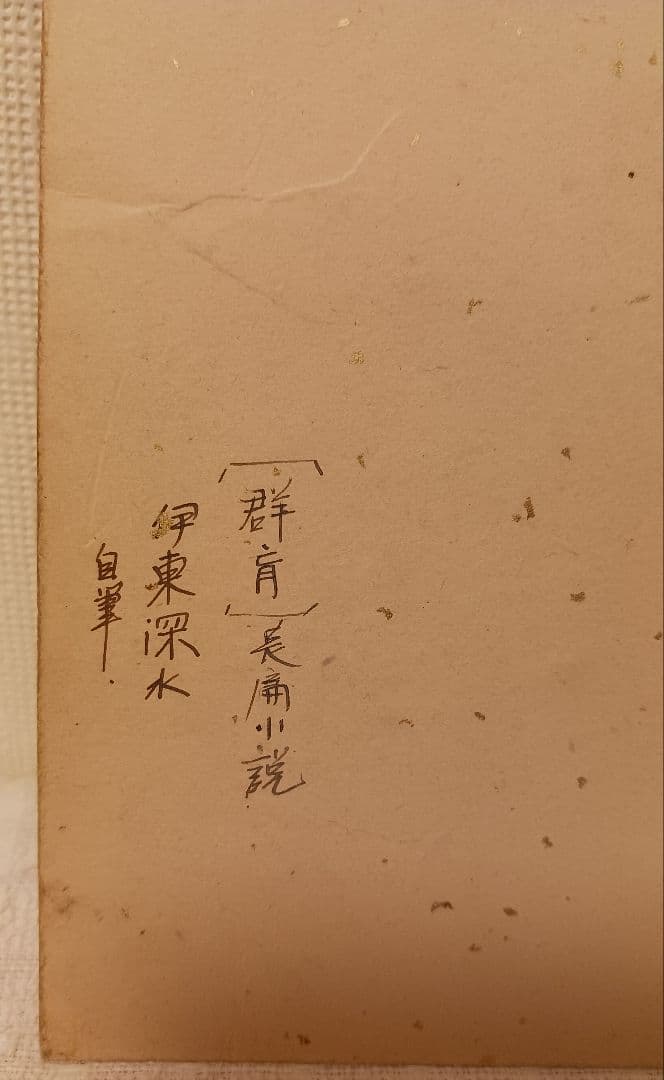 〔群肓〕長扁小説
伊東深水
自筆.